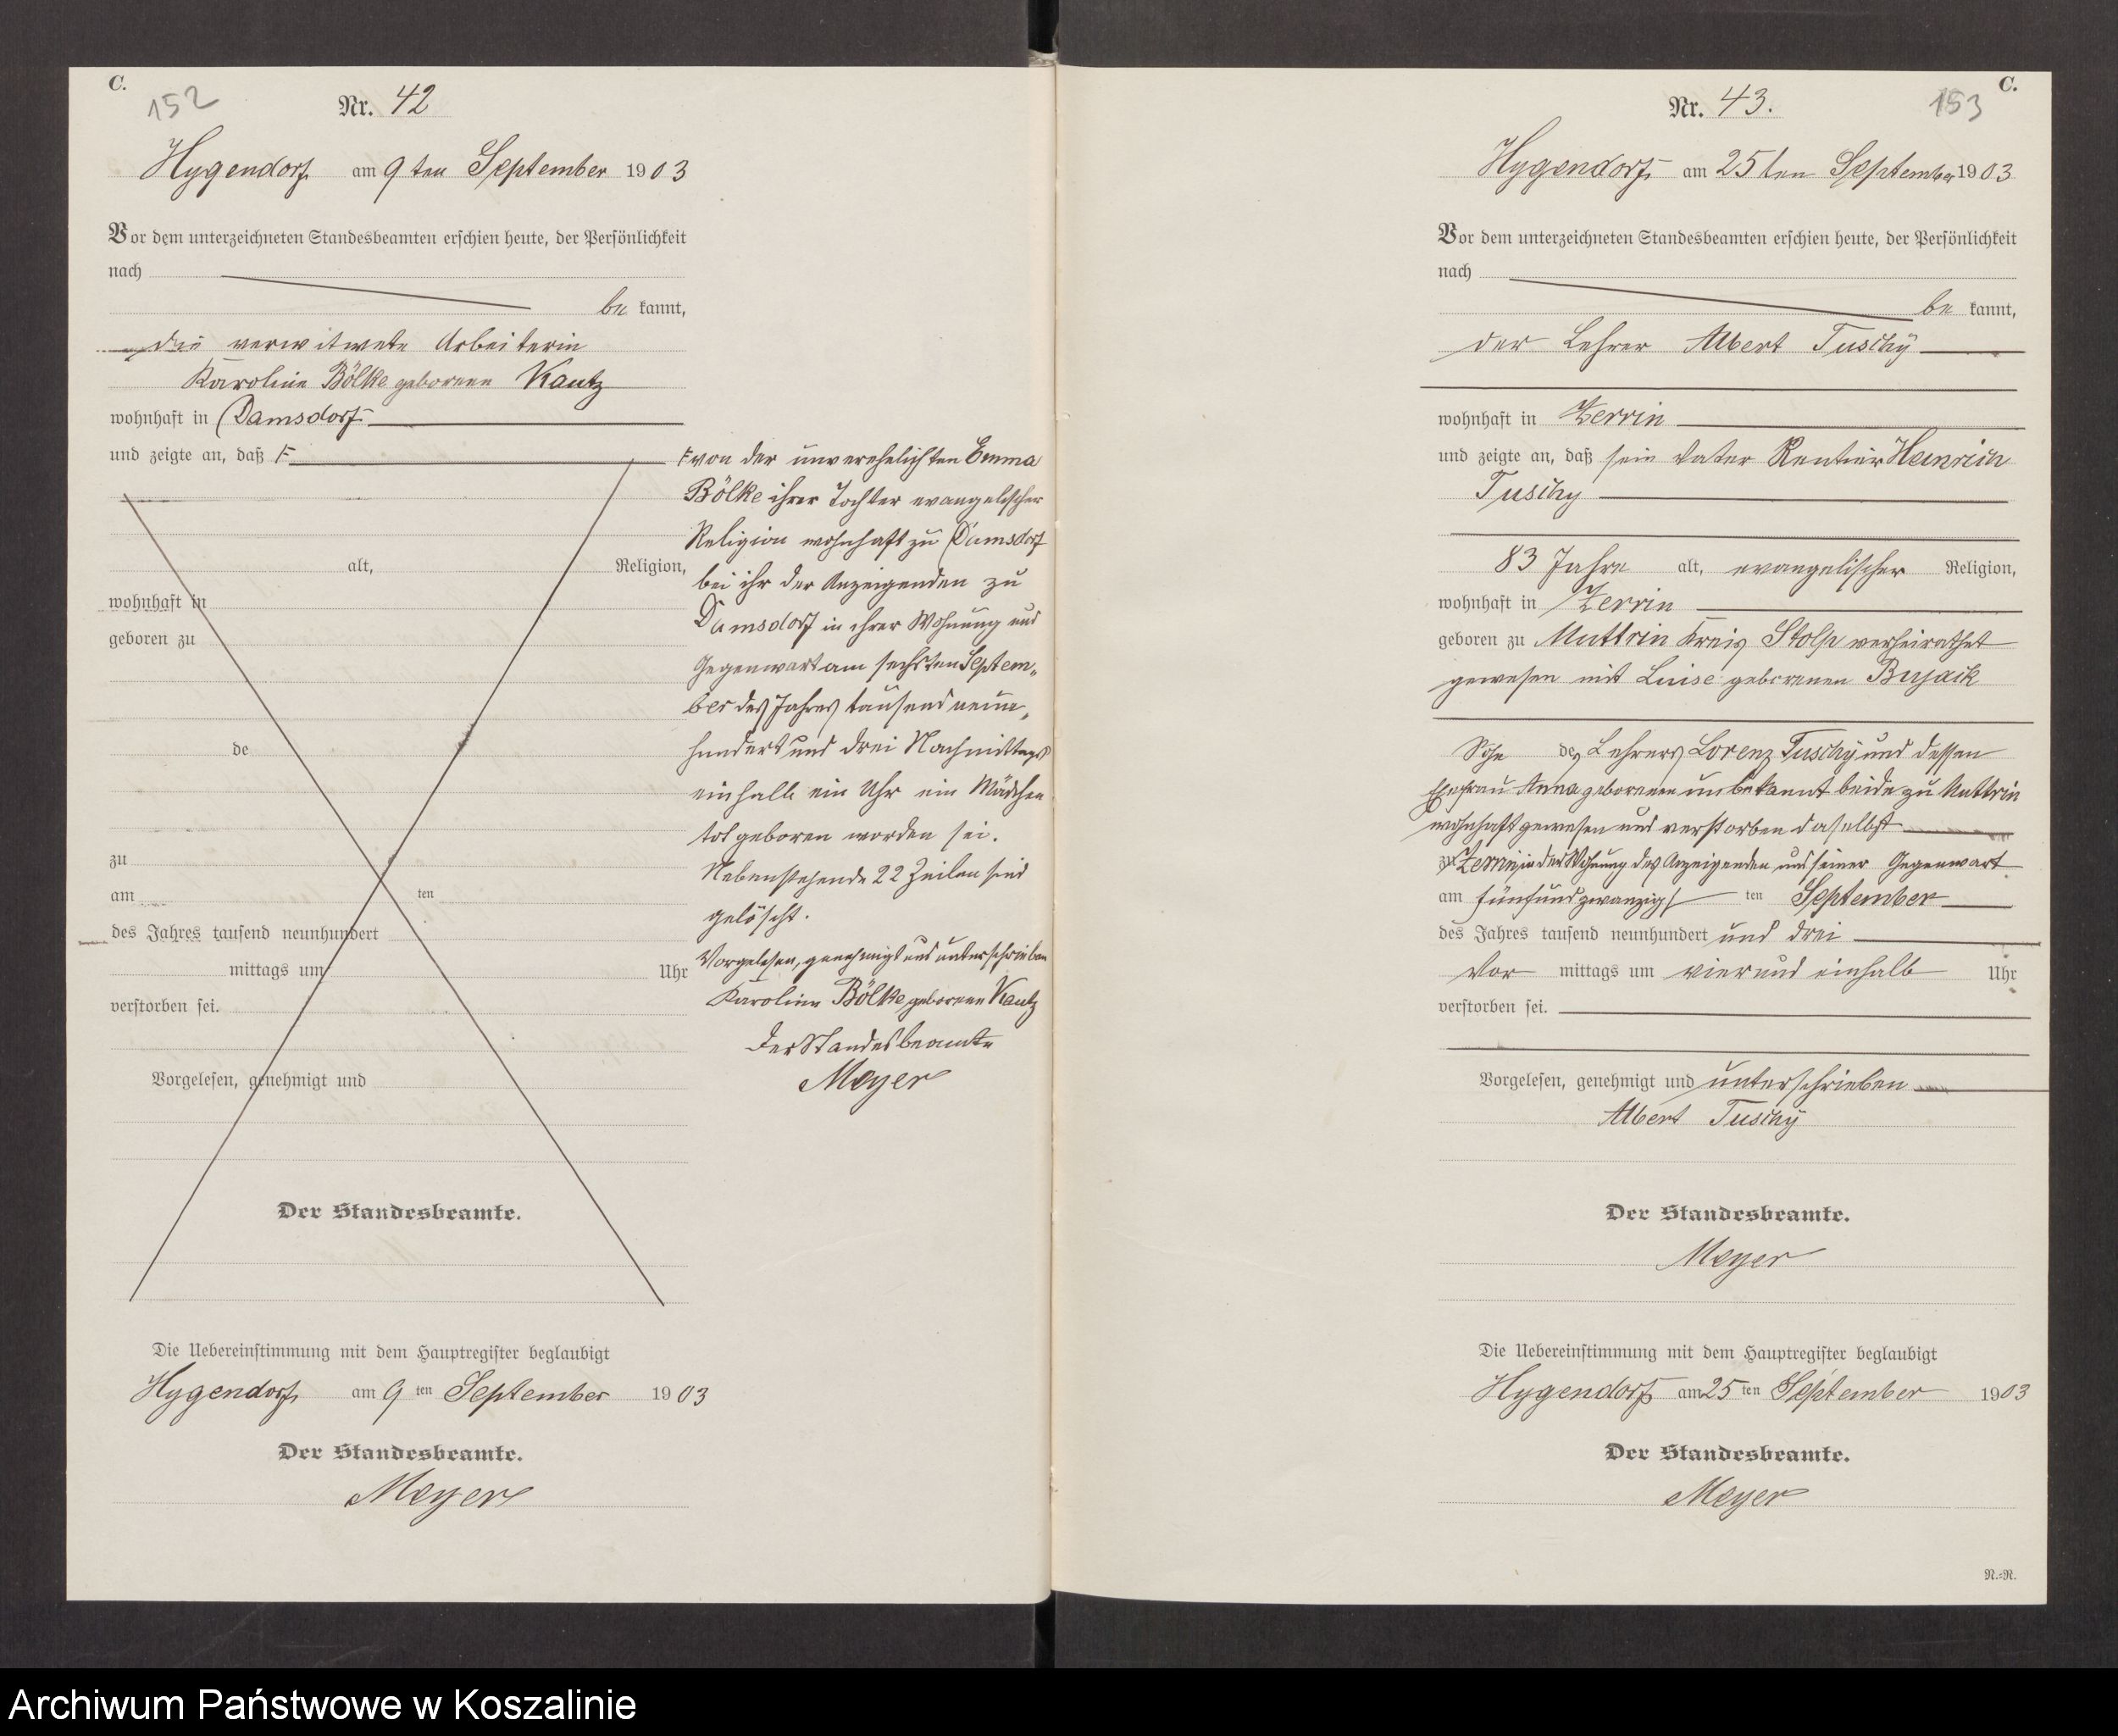 C.
152
Nr. 42
Hygendorf am 9ten September 1903
Vor dem unterzeichneten Standesbeamten erschien heute, der Persönlichkeit
nach
be kannt,
die verwitwete Arbeiterin
Karoline Bölke geborene Kautz
wohnhaft in Damsdorf
und zeigte an, daß F
alt, Religion,
wohnhaft in
geboren zu
de
zu
am ten
des Jahres tausend neunhundert
mittags um Uhr
verstorben sei.
Vorgelesen, genehmigt und
Der Standesbeamte.
F von der unverehelichten Emma
Bölke ihrer Tochter evangelischer
Religion wohnhaft zu Damsdorf
bei ihr der Anzeigenden zu
Damsdorf in ihrer Wohnung und
Gegenwart am sechsten Septem„
ber des Jahres tausend neun„
hundert und drei Nachmittags
einhalb ein Uhr ein Mädchen
tot geboren worden sei.
Nebenstehende 22 Zeilen sind
gelöscht.
Vorgelesen, genehmigt und unterschrieben
Karoline Bölke geborene Kautz
Der Standesbeamte
Meyer
Die Uebereinstimmung mit dem Hauptregister beglaubigt
Hygendorf am 9 ten September 1903
Der Standesbeamte.
Meyer
C.
153
Nr. 43.
Hygendorf am 25ten September 1903
Vor dem unterzeichneten Standesbeamten erschien heute, der Persönlichkeit
nach
be kannt,
der Lehrer Albert Tuschÿ
wohnhaft in Zerrin
und zeigte an, daß sein Vater Rentier Heinrich
Tuschy
83 Jahre alt, evangelischer Religion,
wohnhaft in Zerrin
geboren zu Muttrin Kreis Stolp verheirathet
gewesen mit Luise geborenen Bujack
Sohn des Lehrers Lorenz Tuschÿ und dessen
Ehefrau Anna geborenen unbekannt beide zu Muttrin
wohnhaft gewesen und verstorben daselbst
zu Zerrin in der Wohnung des Anzeigenden und seiner Gegenwart
am fünfundzwanzigs ten September
des Jahres tausend neunhundert und drei
Vor mittags um vier und einhalb Uhr
verstorben sei.
Vorgelesen, genehmigt und unterschrieben
Albert Tuschÿ
Der Standesbeamte.
Meyer
Die Uebereinstimmung mit dem Hauptregister beglaubigt
Hygendorf am 25 ten September 1903
Der Standesbeamte.
Meyer
N.=N.
Archiwum Państwowe w Koszalinie